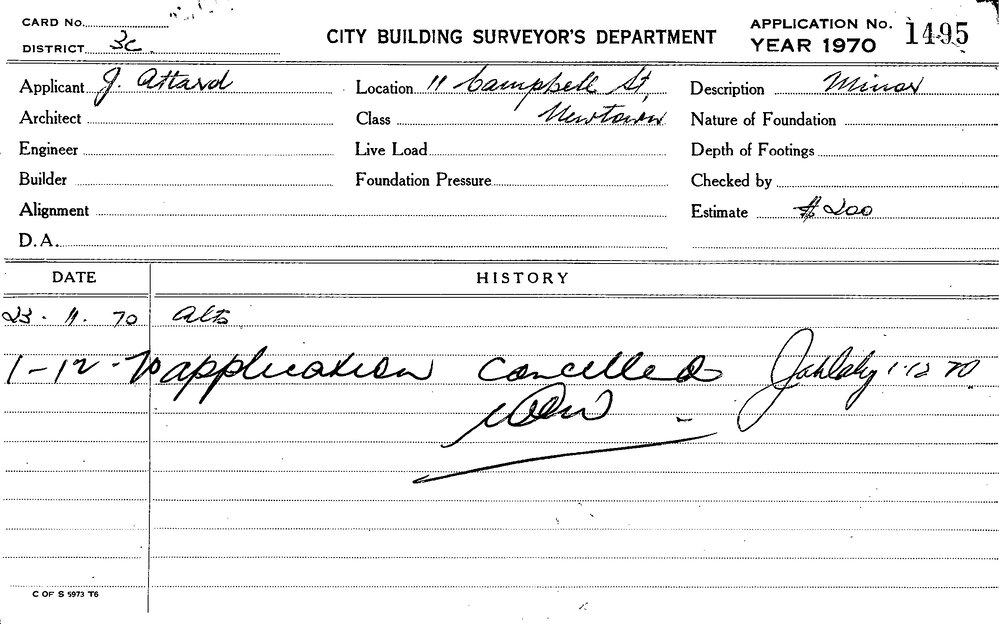 CARD No.
DISTRICT 3c
CITY BUILDING SURVEYOR'S DEPARTMENT
APPLICATION No. 1495
YEAR 1970
Applicant J. Attard
Location 11 Campbell St,
Newtown
Description Minor
Architect
Class
Nature of Foundation
Engineer
Live Load
Depth of Footings
Builder
Foundation Pressure
Checked by
Alignment
Estimate $200
D.A.
DATE HISTORY
23.11.70 Alts
1-12-70 application cancelled 1.12.70
C OF S 5973 T6